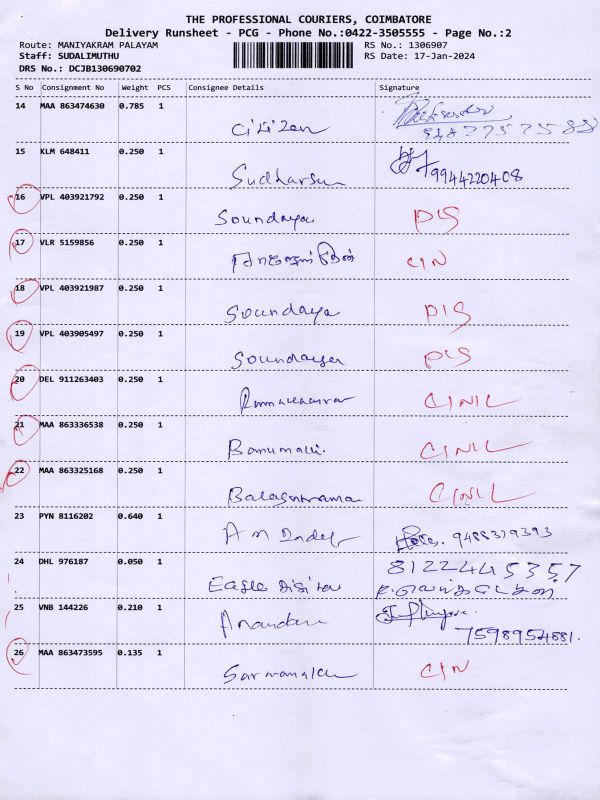 THE PROFESSIONAL COURIERS, COIMBATORE
Delivery Runsheet - PCG - Phone No.:0422-3505555 - Page No.:2
Route: MANIYAKRAM PALAYAM RS No.: 1306907
Staff: SUDALIMUTHU RS Date: 17-Jan-2024
DRS No.: DCJB130690702
S No Consignment No Weight PCS Consignee Details Signature
14 MAA 863474630 0.785 1
Citizen
15 KLM 648411 0.250 1
Sudharsan 9944220408
16 VPL 403921792 0.250 1
Soundarya D/S
17 VLR 5159856 0.250 1
C/N
18 VPL 403921987 0.250 1
Soundarya D/S
19 VPL 403905497 0.250 1
Soundarya D/S
20 DEL 911263403 0.250 1
C/N/L
21 MAA 863336538 0.250 1
Banumathi C/N/L
22 MAA 863325168 0.250 1
C/N/L
23 PYN 8116202 0.640 1
A M 9488379393
24 DHL 976187 0.050 1 8122445357
Eagle
25 VNB 144226 0.210 1
Anandan 7598954881.
26 MAA 863473595 0.135 1
C/N